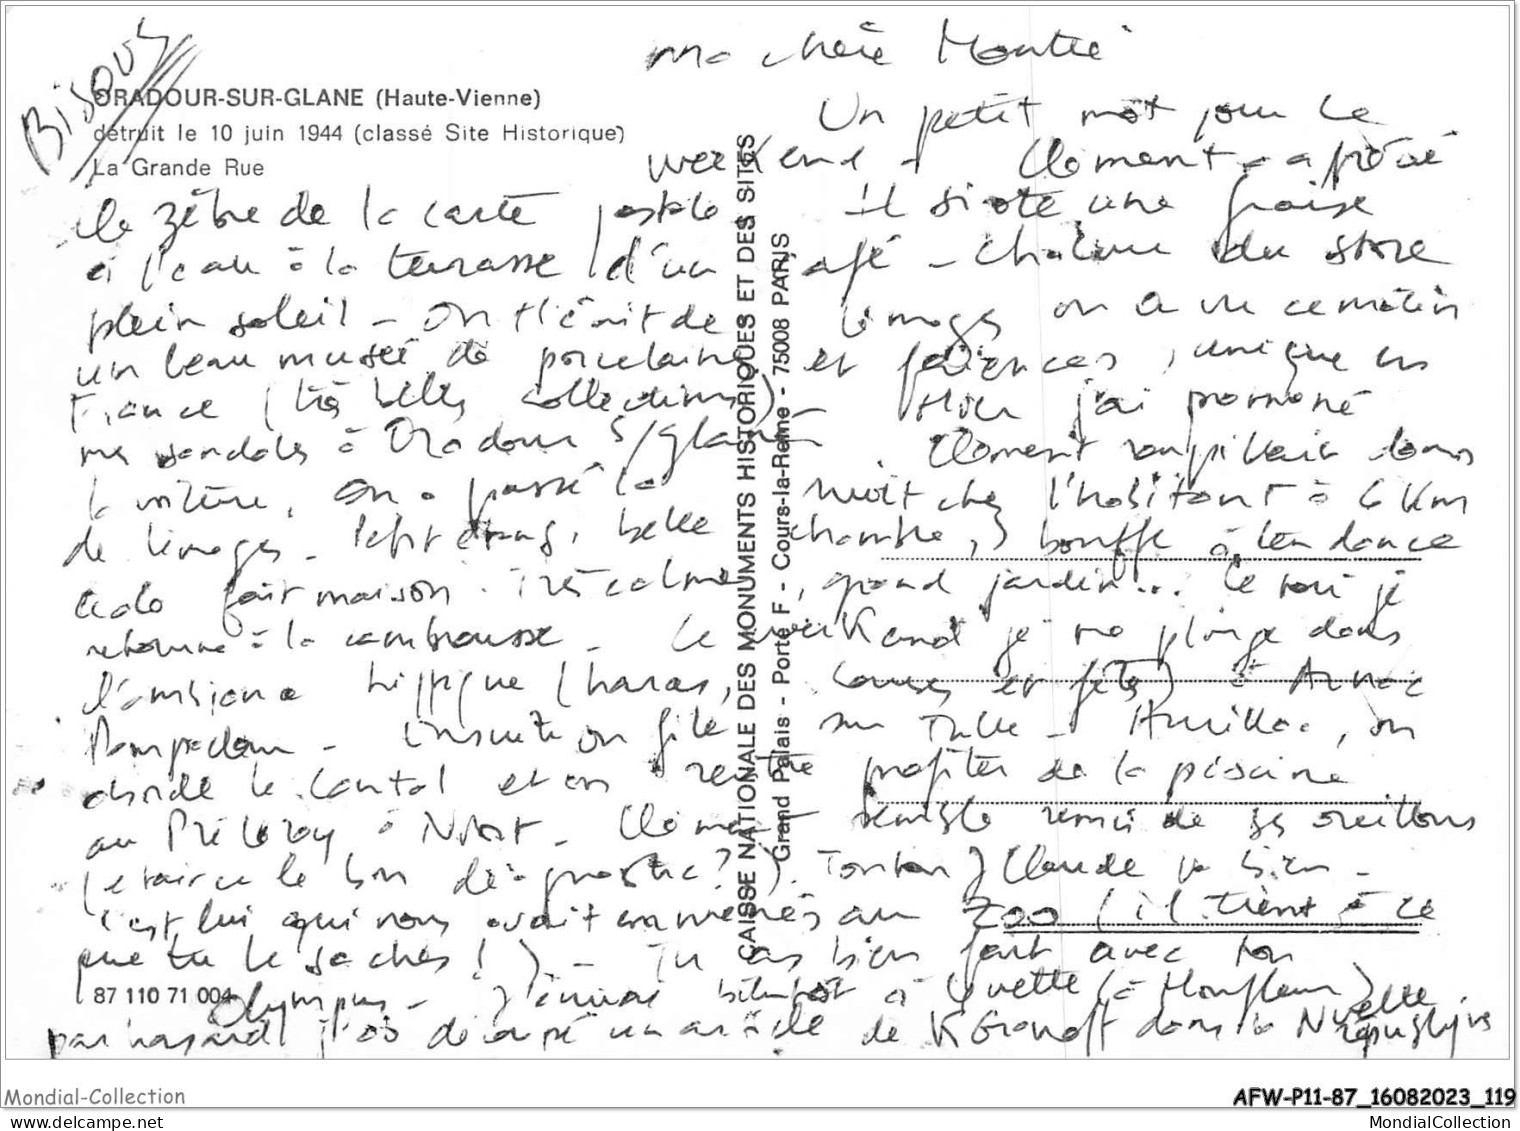 Bisous
ORADOUR-SUR-GLANE (Haute-Vienne)
détruit le 10 juin 1944 (classé Site Historique)
La Grande Rue
ma chère
Un petit mot pour le
weekend - Clément a
le zèbre de la carte postale - il sirote une fraise
à l'eau à la terrasse d'un café - chaleur du store
plein soleil - On de Limoges on a vu ce matin
un beau musée de porcelaine et faïences, unique en
France (très belles collections) - Hier j'ai promené
mes sandales à Oradour s/glane - Clément roupillait dans
la voiture. On a passé la nuit chez l'habitant à 6 km
de Limoges - Petit étang, belle chambre, bouffe à tendance
écolo fait maison. Très calme, grand jardin... Ce soir je
retourne à la cambrousse - Ce weekend je me plonge dans
l'ambiance hippique (haras, courses et fêtes) à Arnac
Pompadour - Ensuite on file sur Tulle - Aurillac, on
le Cantal et on rentre profiter de la piscine
au Pré Leroy à Niort - Clément semble remis de ses oreillons
(était-ce le bon diagnostic?). Tonton J Claude va bien -
c'est lui qui nous avait emmenés au zoo (il tient à ce
que tu le saches!) - Tu as bien fait avec ton
87 110 71 004
Olympus - J'écrirai bientôt à Yvette (à Honfleur)
par hasard j'ai découpé un article de K Gronoff dans la Nvelle
république
CAISSE NATIONALE DES MONUMENTS HISTORIQUES ET DES SITES
Grand Palais - Porte F - Cours-la-Reine - 75008 PARIS
Mondial-Collection
AFW-P11-87_16082023_119
MondialCollection